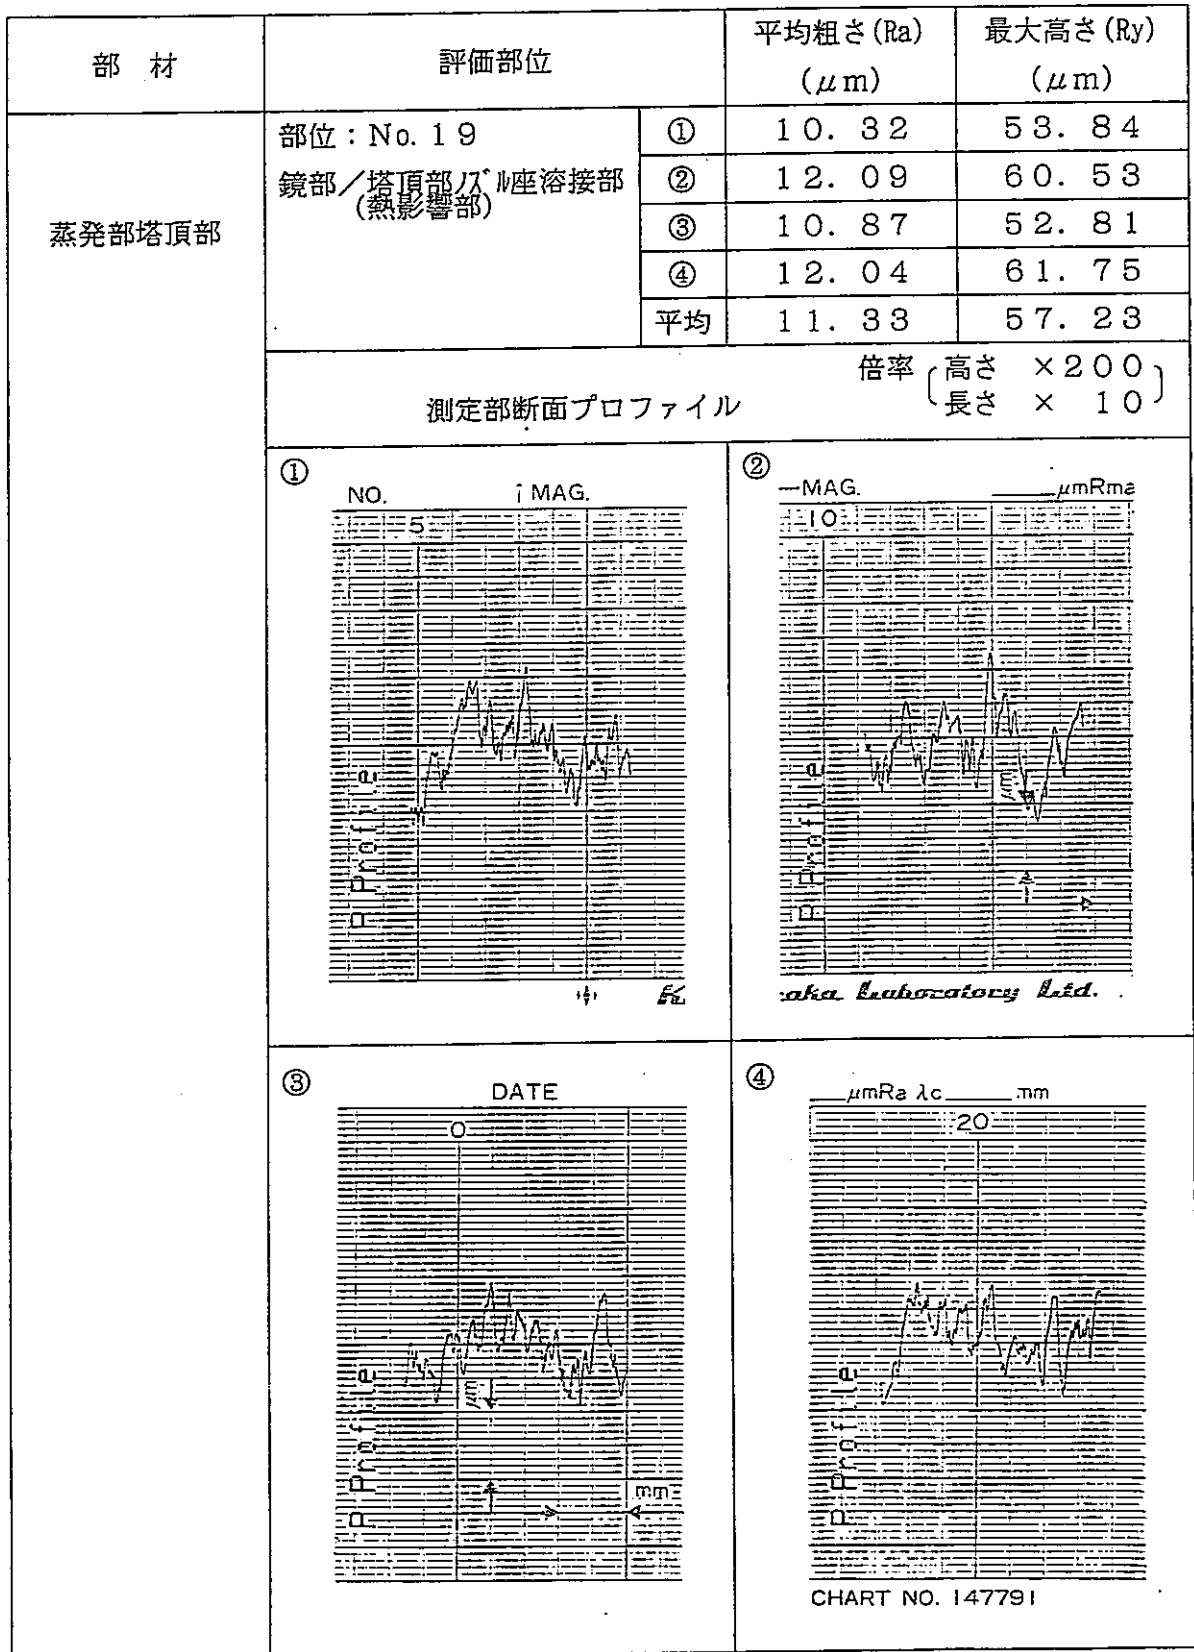 部 材
評価部位
平均粗さ(Ra)
(μm)
最大高さ(Ry)
(μm)
蒸発部塔頂部
部位：No. 19
鏡部／塔頂部ノズル座溶接部
(熱影響部)
① 10. 32 53. 84
② 12. 09 60. 53
③ 10. 87 52. 81
④ 12. 04 61. 75
平均 11. 33 57. 23
測定部断面プロファイル
倍率
高さ ×200
長さ × 10
①
NO. MAG.
5
P Profile
②
—MAG. ______μmRma
10
P Profile
μm
aka Laboratory Ltd.
③
DATE
0
P Profile
μm
mm
④
__μmRa λc______mm
20
P Profile
CHART NO. 147791